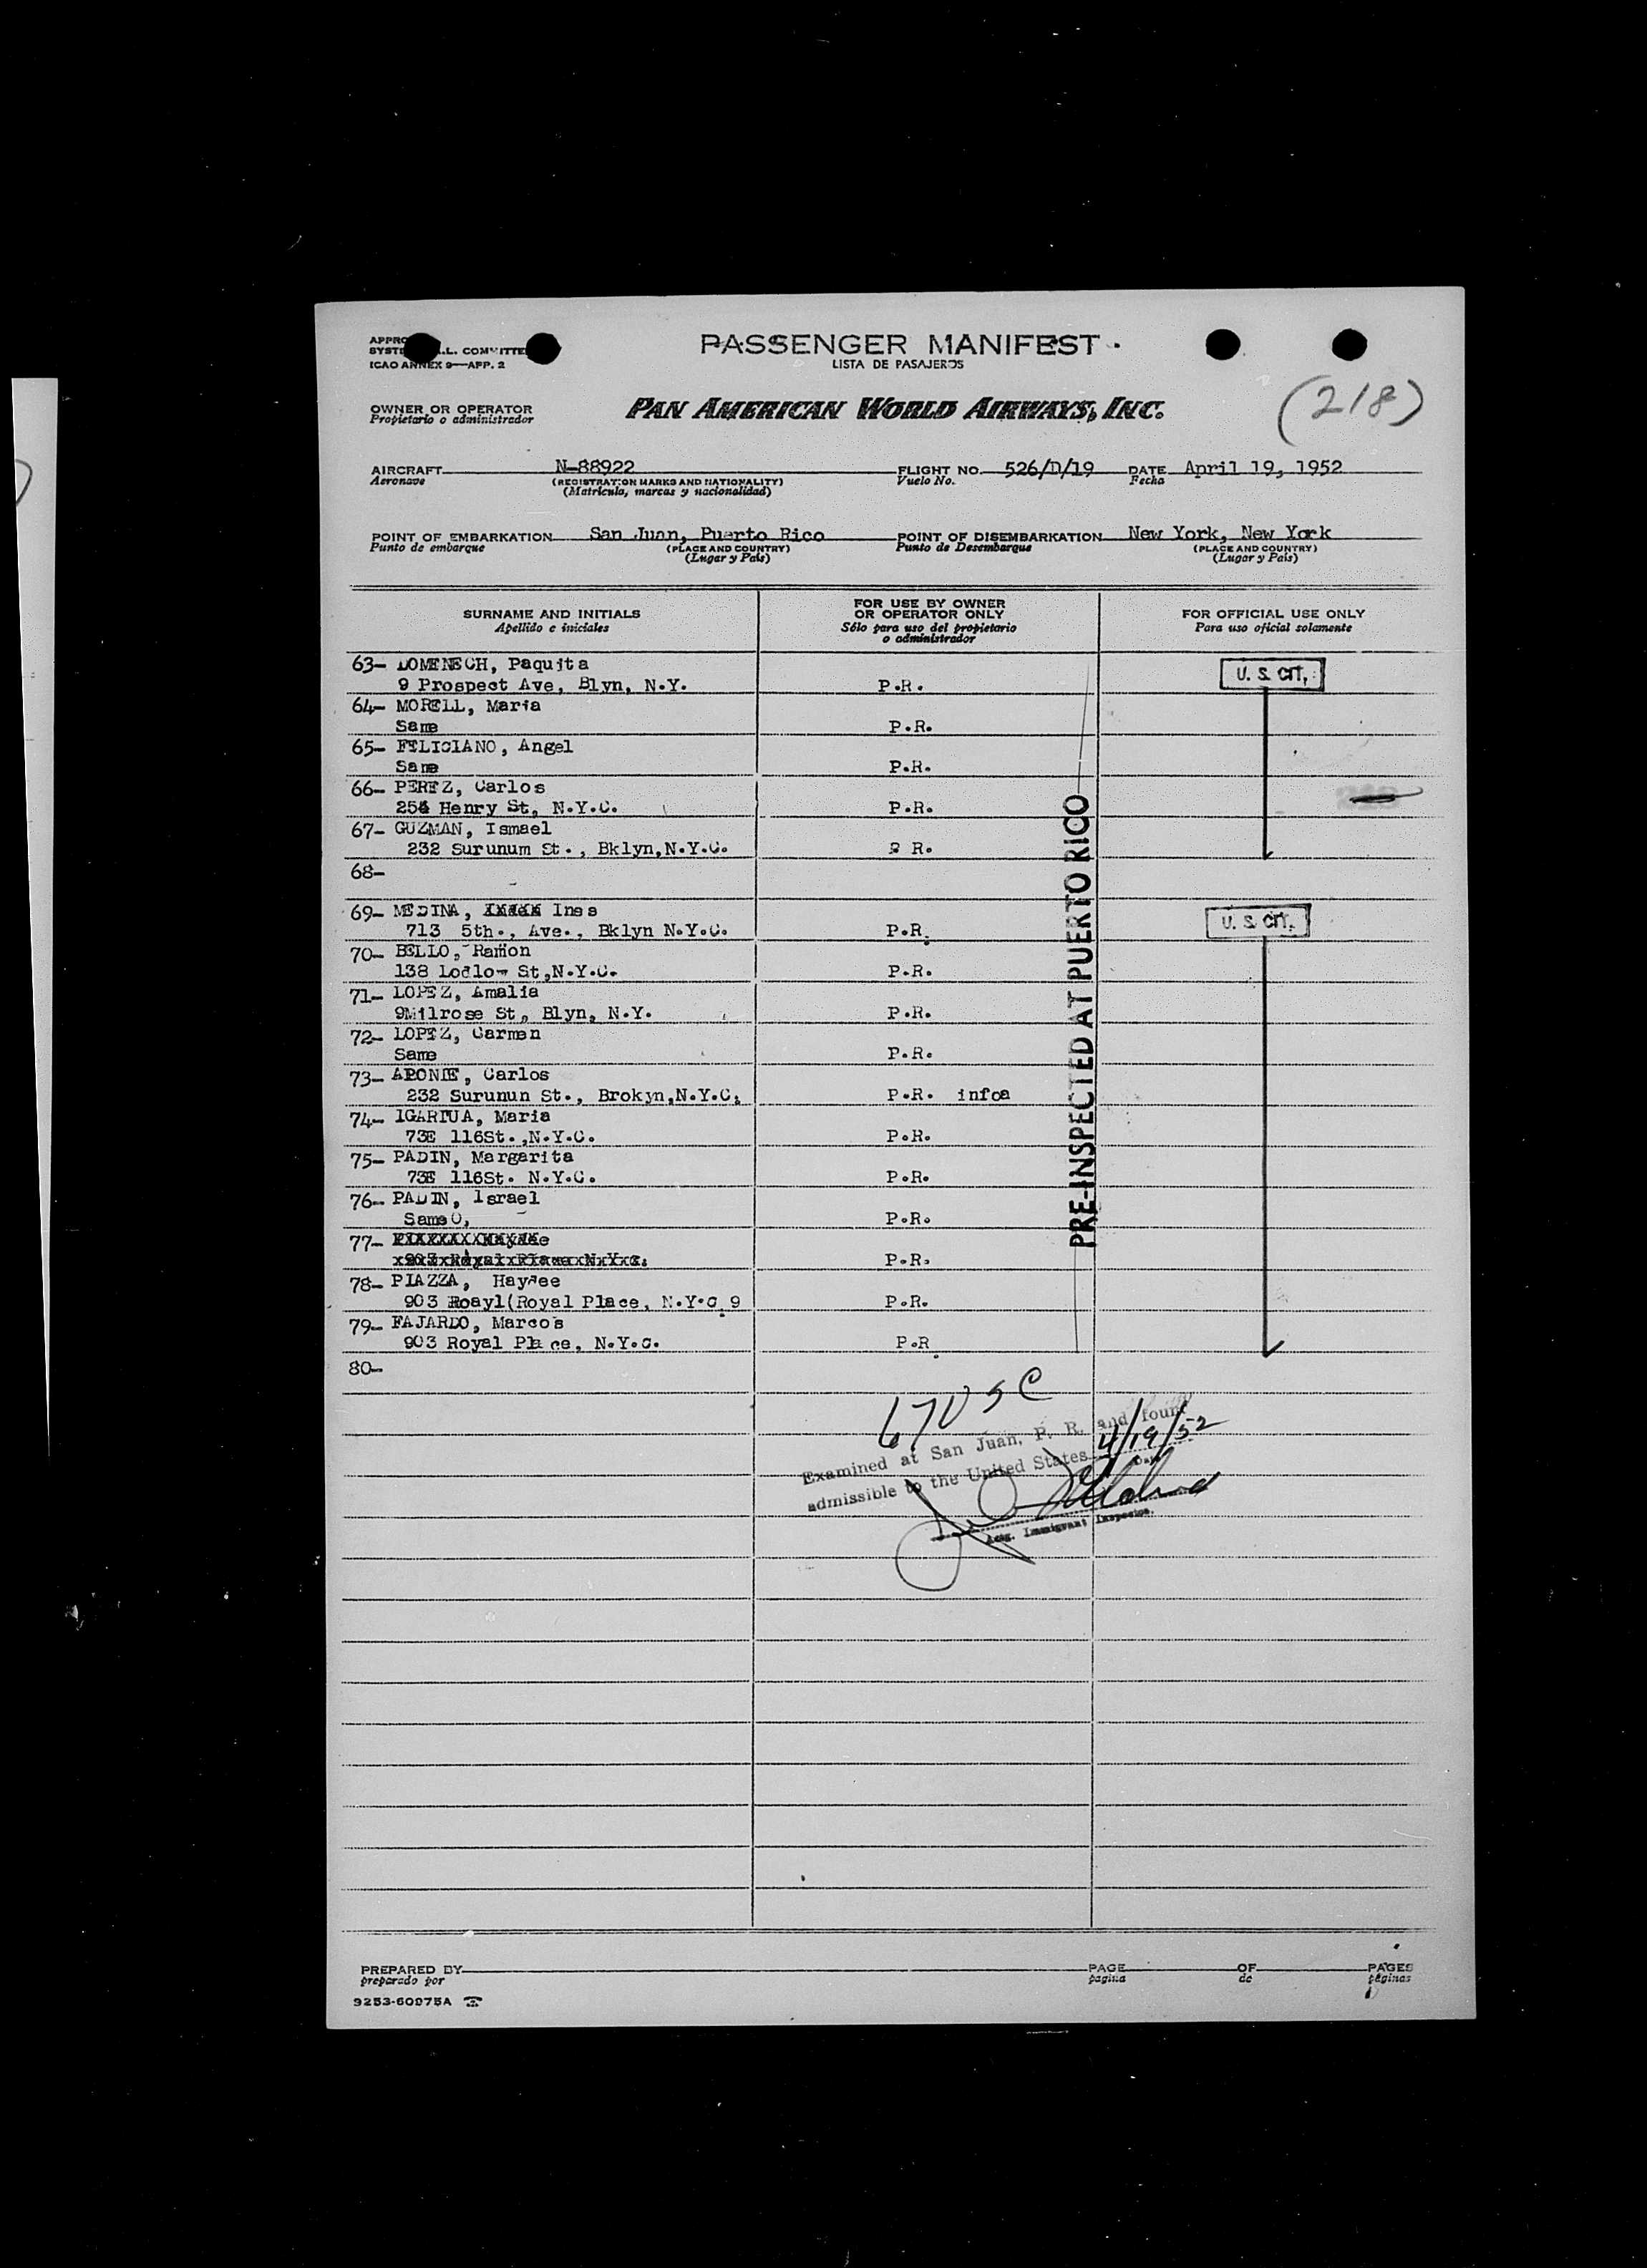 PASSENGER MANIFEST
LISTA DE PASAJEROS
ICAO ANNEX 9—APP. 2
OWNER OR OPERATOR
Propietario o administrador
PAN AMERICAN WORLD AIRWAYS, INC.
(218)
AIRCRAFT N-88922 FLIGHT NO. 526/D/19 DATE April 19, 1952
Aeronave (REGISTRATION MARKS AND NATIONALITY) Vuelo No. Fecha
(Matrícula, marcas y nacionalidad)
POINT OF EMBARKATION San Juan, Puerto Rico POINT OF DISEMBARKATION New York, New York
Punto de embarque (PLACE AND COUNTRY) Punto de Desembarque (PLACE AND COUNTRY)
(Lugar y País) (Lugar y País)
SURNAME AND INITIALS
Apellido e iniciales
FOR USE BY OWNER
OR OPERATOR ONLY
Sólo para uso del propietario
o administrador
FOR OFFICIAL USE ONLY
Para uso oficial solamente
63- DOMENECH, Paquita
9 Prospect Ave, Blyn, N.Y. P.R. U. S. CIT.
64- MORELL, Maria
Same P.R.
65- FELICIANO, Angel
Same P.R.
66- PEREZ, Carlos
254 Henry St, N.Y.C. P.R.
67- GUZMAN, Ismael
232 Surunum St., Bklyn,N.Y.C. R.
68-
69- MEDINA, Ines
713 5th., Ave., Bklyn N.Y.C. P.R. U. S. CIT.
70- BELLO, Ramon
138 Lodlow St,N.Y.C. P.R.
71- LOPEZ, Amalia
9Milrose St, Blyn, N.Y. P.R.
72- LOPEZ, Carmen
Same P.R.
73- APONIE, Carlos
232 Surunun St., Brokyn,N.Y.C. P.R. infoa
74- IGARTUA, Maria
73E 116St.,N.Y.C. P.R.
75- PADIN, Margarita
73E 116St. N.Y.C. P.R.
76- PADIN, Israel
Same P.R.
77-
P.R.
78- PIAZZA, Haydee
903 Roayl(Royal Place, N.Y.C 9 P.R.
79- FAJARDO, Marcos
903 Royal Place, N.Y.C. P.R
80-
PRE-INSPECTED AT PUERTO RICO
67 USC
Examined at San Juan, P. R. and found
admissible to the United States 4/19/52
Actg. Immigrant Inspector.
PREPARED BY PAGE OF PAGES
preparado por pagina de páginas
9253-60975A